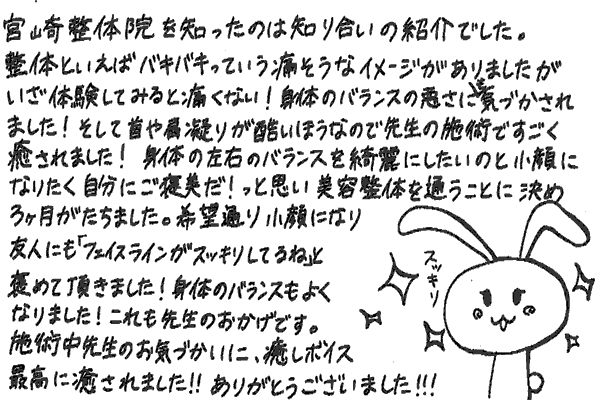 宮崎整体院を知ったのは知り合いの紹介でした。
整体といえばバキバキっていう痛そうなイメージがありましたが
いざ体験してみると痛くない！身体のバランスの悪さに気づかされ
ました！そして首や肩凝りが酷いほうなので先生の施術ですごく
癒されました！身体の左右のバランスを綺麗にしたいのと小顔に
なりたく自分にご褒美だ！っと思い美容整体を通うことに決め
3ヶ月がたちました。希望通り小顔になり
友人にも「フェイスラインがスッキリしてるね」と
褒めて頂きました！身体のバランスもよく
なりました！これも先生のおかげです。
施術中先生のお気づかいに、癒しボイス
最高に癒されました!!ありがとうございました!!!
スッキリ